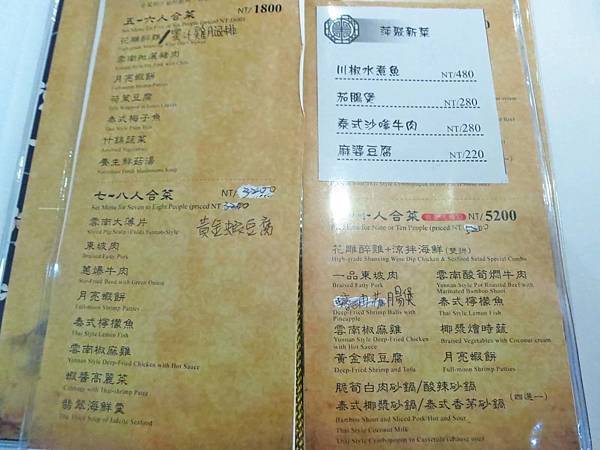 五~六人合菜 NT/1800
花雕醉雞/蜜汁雞腿排
月亮蝦餅
荷葉豆腐
泰式梅子魚
什錦蔬菜
養生鮮菇湯
七~八人合菜 NT/3200
Set Menu for Seven to Eight People (priced NT 3200
雲南大薄片 黃金蝦豆腐
東坡肉
Braised Fatty Pork
蔥爆牛肉
Stir-Fried Beef with Green Onion
月亮蝦餅
Full-moon Shrimp Patties
泰式檸檬魚
Thai Style Lemon Fish
雲南椒麻雞
Yunnan Style Deep-Fried Chicken with Hot Sauce
蝦醬高麗菜
Cabbage with Thai-shrimp Paste
翡翠海鮮羹
Thick Soup of Jadeite Seafood
萍聚新菜
川椒水煮魚 NT/480
茄腸煲 NT/280
泰式沙嗲牛肉 NT/280
麻婆豆腐 NT/220
十人合菜 NT/5200
Menu for Nine or Ten People (priced NT 5200
花雕醉雞+涼拌海鮮(雙拼)
High-grade Shaoxing Wine Dip Chicken & Seafood Salad Special Combo
一品東坡肉
Braised Fatty Pork
雲南酸筍燜牛肉
Yunnan Style Pot Roasted Beef with
Marinated Bamboo Shoot
腸煲
Deep-Fried Shrimp Balls with
Pineapple
泰式檸檬魚
Thai Style Lemon Fish
雲南椒麻雞
Yunnan Style Deep-Fried Chicken
with Hot Sauce
椰漿燴時蔬
Braised Vegetables with Coconut cream
黃金蝦豆腐
Deep-Fried Shrimp and Tofu
月亮蝦餅
Full-moon Shrimp Patties
脆筍白肉砂鍋/酸辣砂鍋
泰式椰漿砂鍋/泰式香茅砂鍋(四選一)
Bamboo Shoot and Sliced Pork/Hot and Sour
Thai Style Coconut Milk